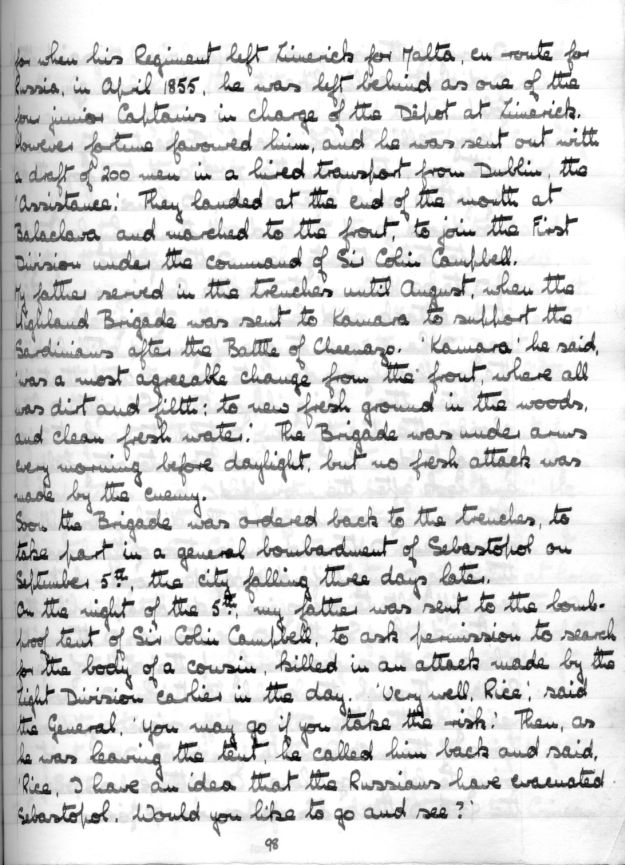 for when his Regiment left Limerick for Malta, en-route for
Russia, in April 1855, he was left behind as one of the
four junior Captains in charge of the Dêpot at Limerick.
However fortune favoured him, and he was sent out with
a draft of 200 men in a hired transport from Dublin, the
'Assistance'. They landed at the end of the month at
Balaclava and marched to the front, to join the First
Division under the command of Sir Colin Campbell.
My father served in the trenches until August, when the
Highland Brigade was sent to Kamara to support the
Sardinians after the Battle of Cheenazo. 'Kamara' he said,
'was a most agreeable change from the front, where all
was dirt and filth; to new fresh ground in the woods,
and clean fresh water.' The Brigade was under arms
every morning before daylight, but no fresh attack was
made by the enemy.
Soon the Brigade was ordered back to the trenches, to
take part in a general bombardment of Sebastopol on
September 5th, the city falling three days later.
On the night of the 5th, my father was sent to the bomb-
proof tent of Sir Colin Campbell, to ask permission to search
for the body of a cousin, killed in an attack made by the
Light Division earlier in the day. 'Very well, Rice', said
the General, 'you may go if you take the risk.' Then, as
he was leaving the tent, he called him back and said,
'Rice, I have an idea that the Russians have evacuated
Sebastopol. Would you like to go and see?'
98